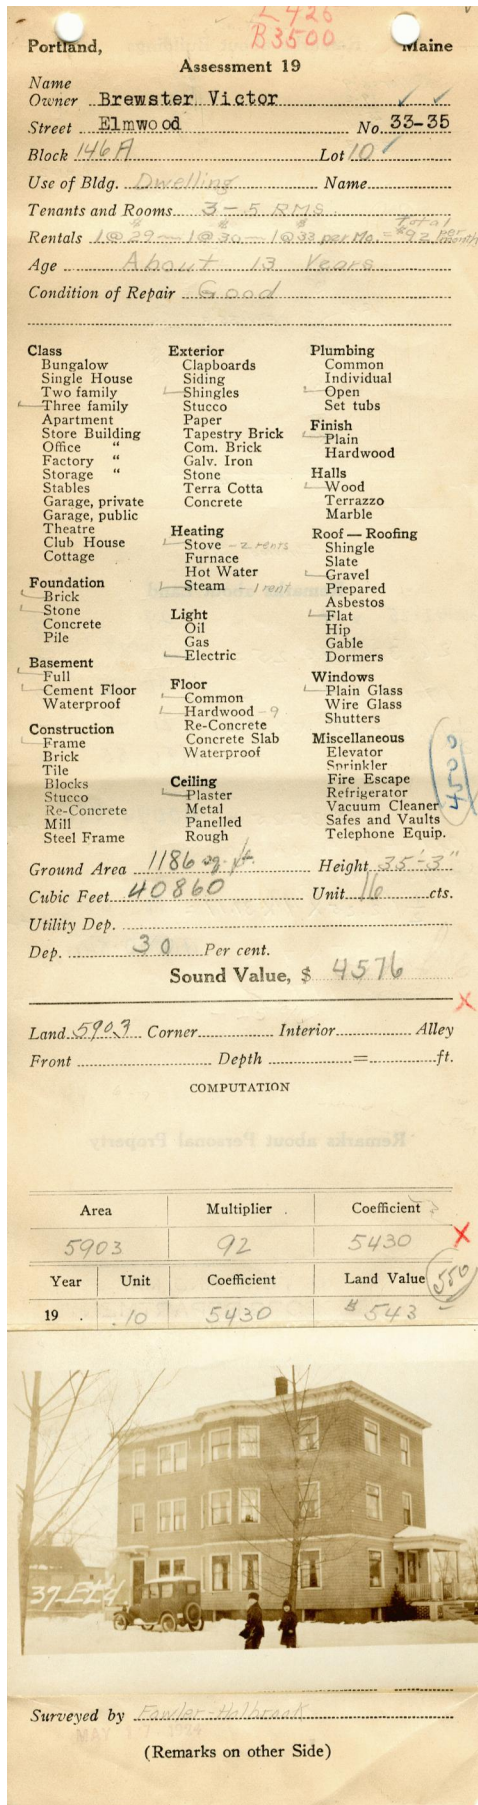 L 425
B 3500
Portland, Maine
Assessment 19
Name
Owner Brewster Victor
Street Elmwood No. 33-35
Block 146A Lot 10
Use of Bldg. Dwelling Name
Tenants and Rooms 3-5 RMS
Rentals 1@$29 — 1@$30 — 1@$33 per Mo. = Total $92 per month
Age About 13 Years
Condition of Repair Good
Class
Bungalow
Single House
Two family
Three family
Apartment
Store Building
Office "
Factory "
Storage "
Stables
Garage, private
Garage, public
Theatre
Club House
Cottage
Foundation
Brick
Stone
Concrete
Pile
Basement
Full
Cement Floor
Waterproof
Construction
Frame
Brick
Tile
Blocks
Stucco
Re-Concrete
Mill
Steel Frame
Exterior
Clapboards
Siding
Shingles
Stucco
Paper
Tapestry Brick
Com. Brick
Galv. Iron
Stone
Terra Cotta
Concrete
Heating
Stove - 2 rents
Furnace
Hot Water
Steam 1 rent
Light
Oil
Gas
Electric
Floor
Common
Hardwood - 9
Re-Concrete
Concrete Slab
Waterproof
Ceiling
Plaster
Metal
Panelled
Rough
Plumbing
Common
Individual
Open
Set tubs
Finish
Plain
Hardwood
Halls
Wood
Terrazzo
Marble
Roof — Roofing
Shingle
Slate
Gravel
Prepared
Asbestos
Flat
Hip
Gable
Dormers
Windows
Plain Glass
Wire Glass
Shutters
Miscellaneous
Elevator
Sprinkler
Fire Escape
Refrigerator
Vacuum Cleaner
Safes and Vaults
Telephone Equip.
4500
Ground Area 1186 sq. ft. Height 35'-3"
Cubic Feet 40860 Unit 16 cts.
Utility Dep.
Dep. 30 Per cent.
Sound Value, $ 4576
Land 5903 Corner Interior Alley
Front Depth = ft.
COMPUTATION
Remarks about Personal Property
Area Multiplier Coefficient
5903 92 5430
Year Unit Coefficient Land Value 550
19 .10 5430 $543
39-Et'd
Surveyed by Fowler-Holbrook
MAY
(Remarks on other Side)